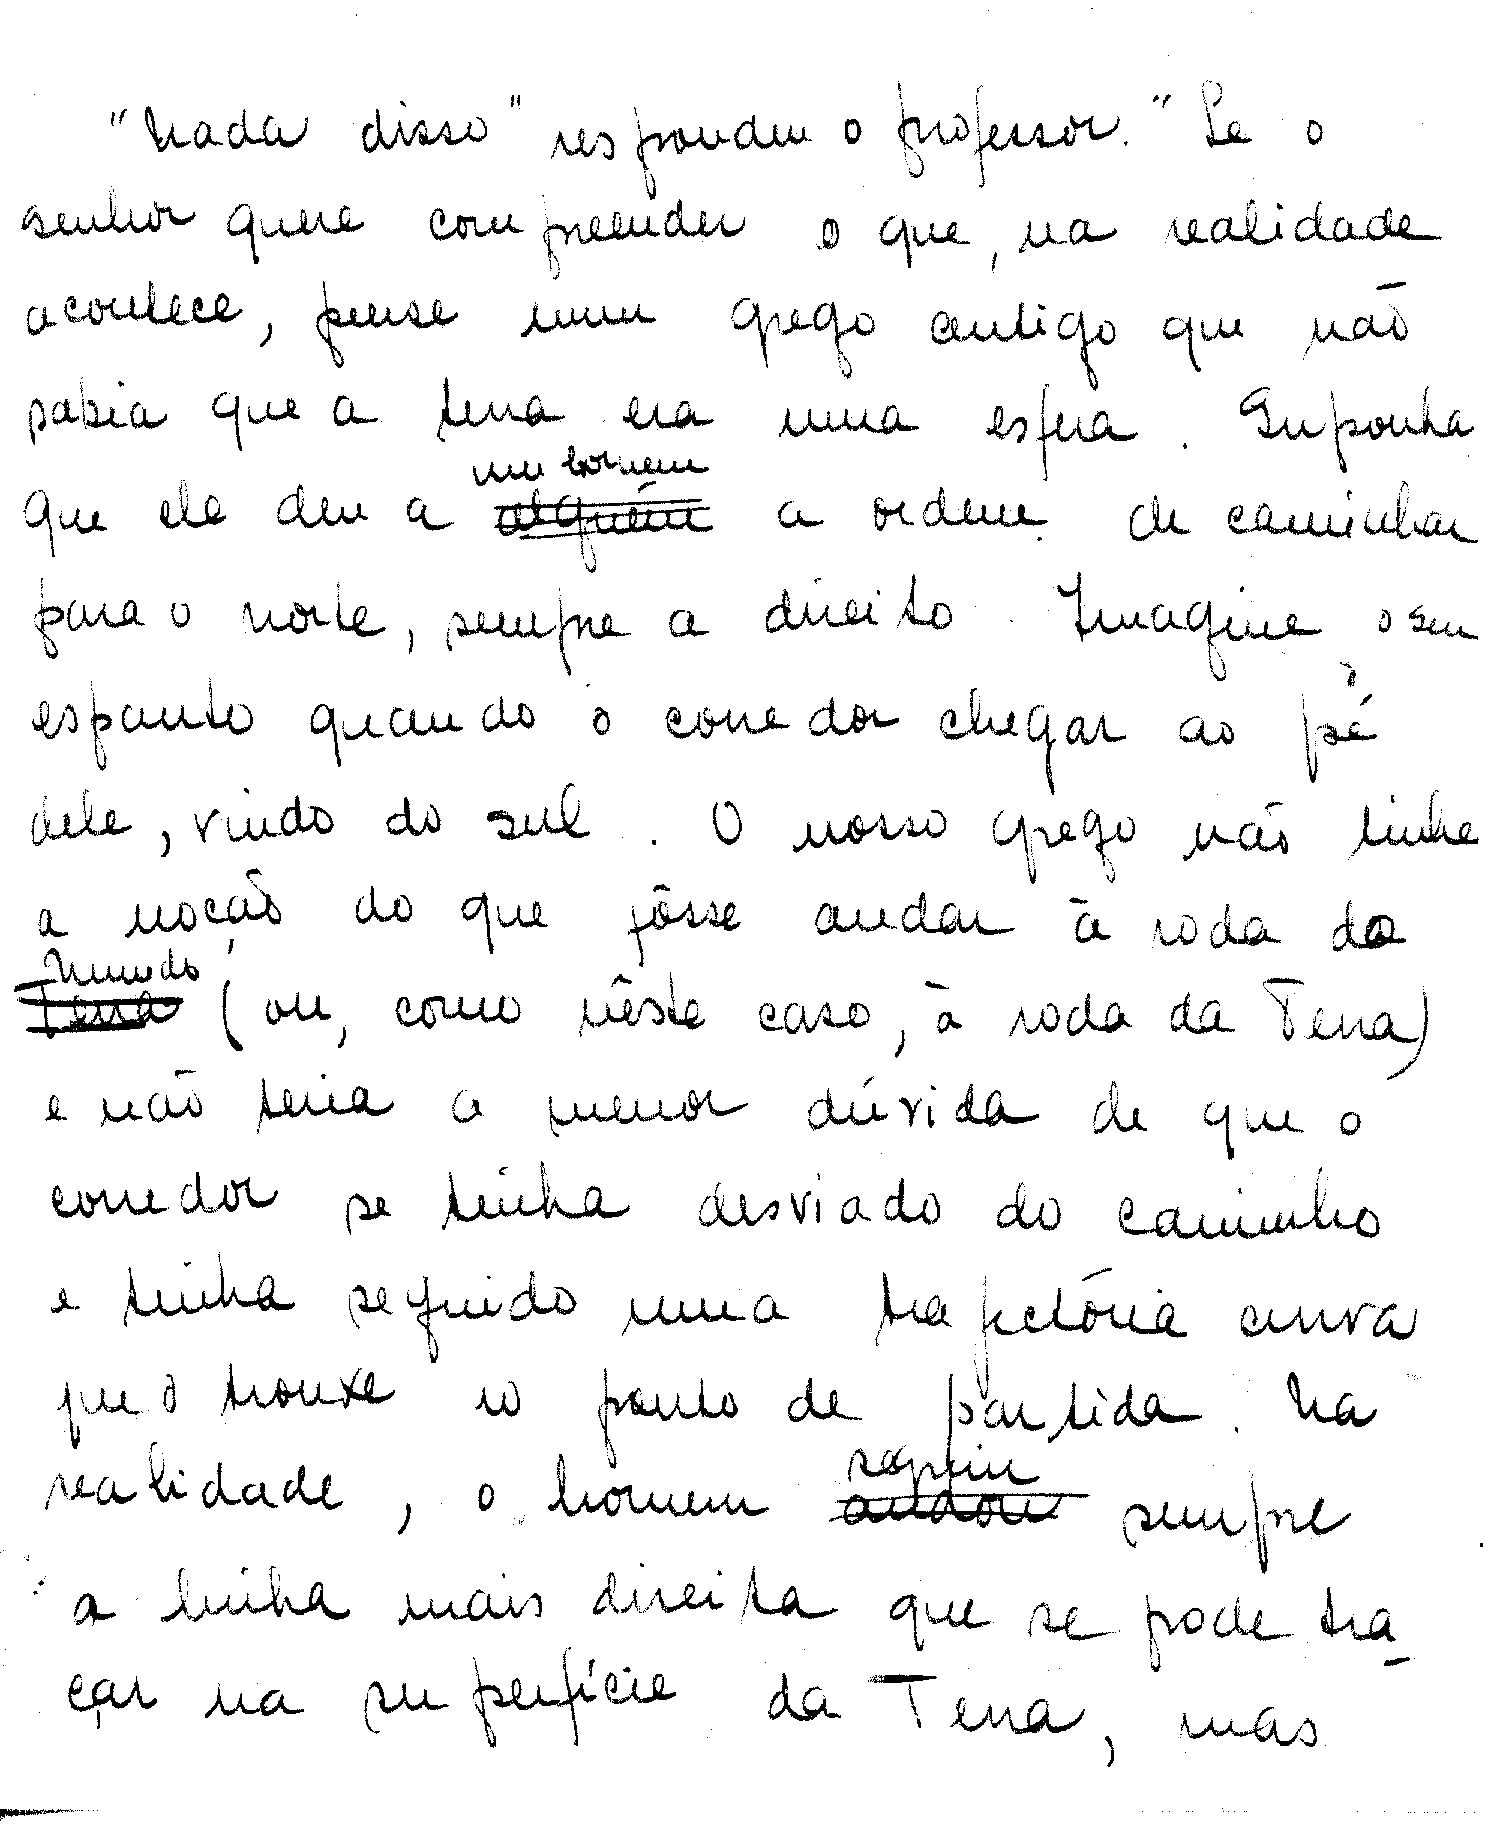 "Nada disso" respondeu o professor. "Se o
senhor quere compreender o que, na realidade
acontece, pense num grego antigo que não
sabia que a terra era uma esfera. Suponha
um homem
que ele deu a alguém a ordem de caminhar
para o norte, sempre a direito. Imagine o seu
espanto quando o corredor chegar ao pé
dele, vindo do sul. O nosso grego não tinha
a noção do que fôsse andar à roda do
mundo
Terra (ou, como nêste caso, à roda da Terra)
e não teria a menor dúvida de que o
corredor se tinha desviado do caminho
e tinha seguido uma trajectória curva
que o trouxe ao ponto de partida. Na
seguiu
realidade, o homem andou sempre
a linha mais direita que se pode tra
çar na superfície da Terra, mas